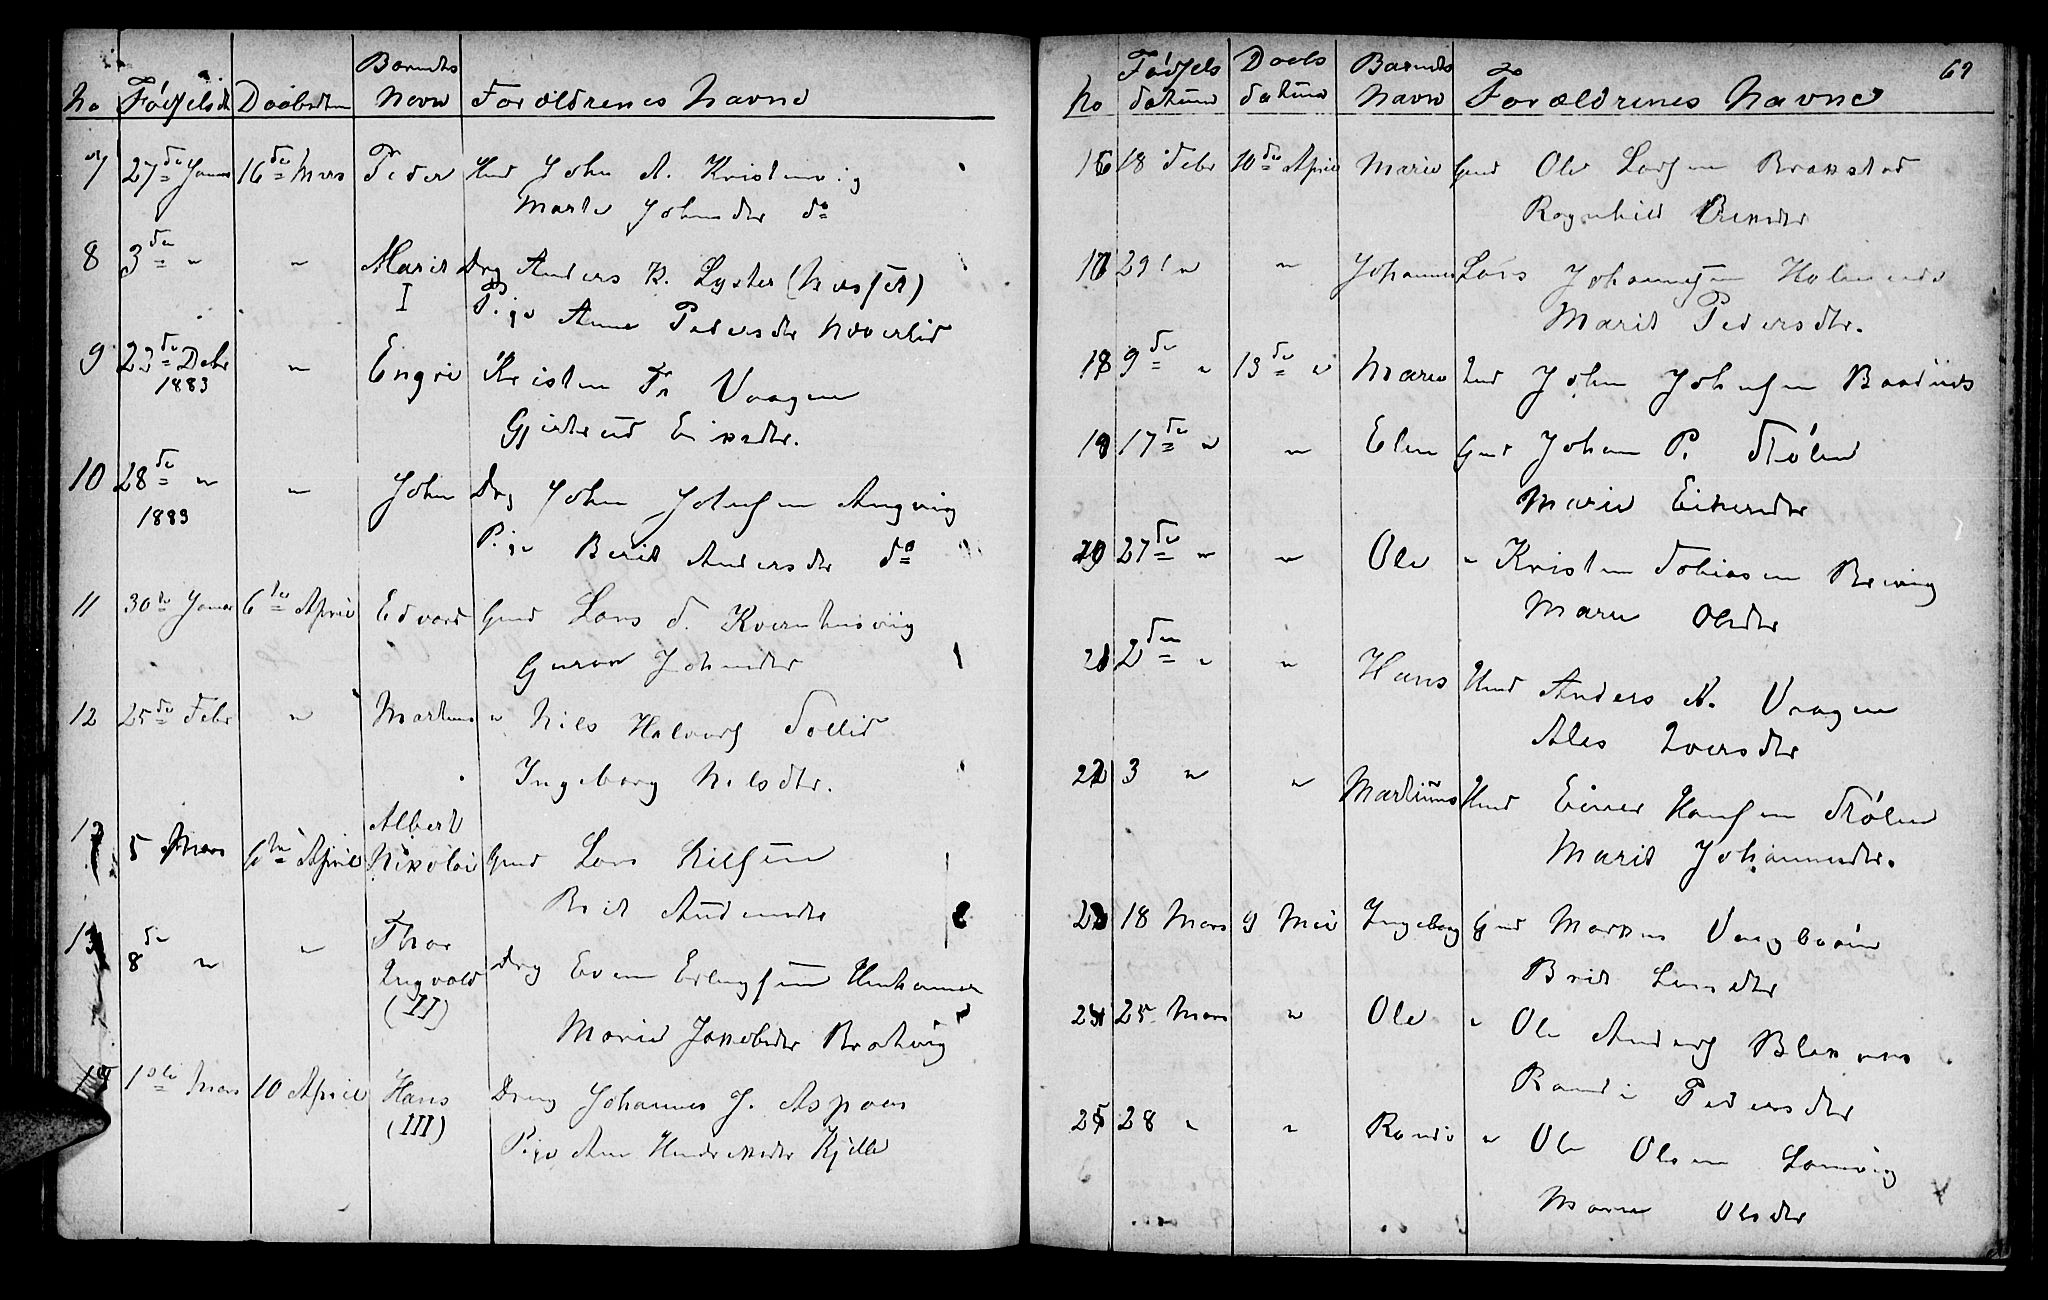 Barnets
No Fødselsdt Daabsdtm Navn Forældrenes Navne
7 27de Januar 16de Mars Peder Hmd John A. Kristenvig
Marte Johnsdtr do
8 3de " " Marit Drg Anders K. Lyster (Nersæt)
I Pige Anne Pedersdtr Nøverlid
9 22de Debr " Engri Kristen Fr Vaagen
1883
Gjertrud Eriksdtr.
10 28de " " John Drg John Johnsen Angvig
1883
Pige Berit Andersdtr do
11 30de Januar 6te April Edvard Gmd Lars d. Kvernhusvig
Guron Johnsdtr
12 25de Febr " Martinus " Nils Halvors Sollid
Ingeborg Nilsdtr.
Albert
5 Mars 6te April Nikolai Gmd Lars Nilsen
Brit Andersdtr
13 Thor
8de " " Ingvald Drg Even Erlingsen
(II)
Marie Jakobsdtr Bratvig
1ste Mars 10 April Hans Dreng Johannes J. Aspoen
(III)
Pige Ane Hendriksdtr Kjelle
69
Fødsels Daabs Barnets
No datum datum Navn Forældrenes Navne
16 18 Febr 10de April Marie Gmd Ole Larsen Brakstad
Ragnhild
17 29 " " Johannes Lars Johannesen
Marit Pedersdtr.
18 9de " 13de " Maren Hmd John Johnsen
19 17de " " Elen Gmd Johan P. Stølen
Marie Einersdtr
20 27de " " Ole " Kristen Tobiasen Brevig
Maren Olsdtr
21 2den " " Hans Hmd Anders A. Vaagen
Ales Iversdtr
22 3 " " Martinus Hmd Einer Hansen Stølen
Marit Johannesdtr.
23 18 Mars 9 Mai Ingeborg Gmd Markus Vaagbøen
Brit Larsdtr
24 25 Mars " Ole " Ole Anders
Randi Pedersdtr
25 28 " " Randi " Ole Olsen
Maren Olsdtr